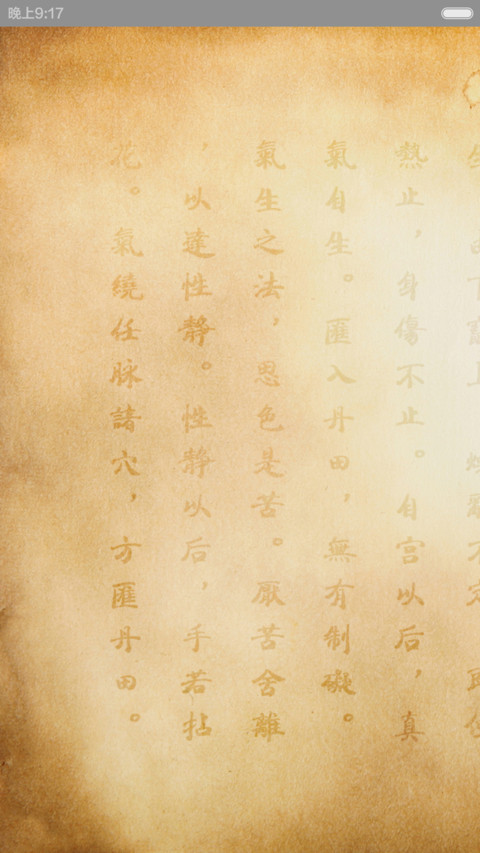 晚上9:17
熱止，身傷不止。自宮以后，真
氣自生。匯入丹田，無有制礙。
氣生之法，思色是苦。厭苦舍離
，以達性靜。性靜以后，手若拈
花。氣繞任脉諸穴，方匯丹田。